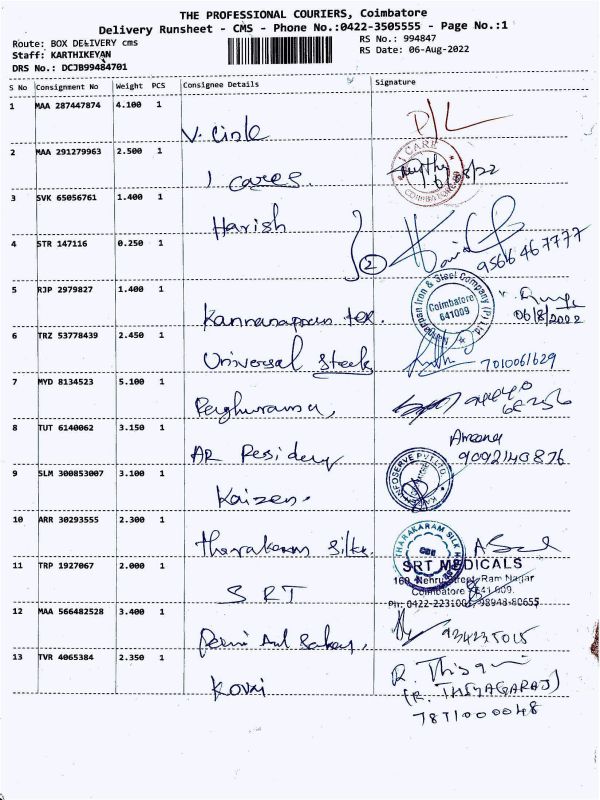 THE PROFESSIONAL COURIERS, Coimbatore
Delivery Runsheet - CMS - Phone No.:0422-3505555 - Page No.:1
Route: BOX DELIVERY cms
RS No.: 994847
Staff: KARTHIKEYAN
RS Date: 06-Aug-2022
DRS No.: DCJB99484701
S No Consignment No Weight PCS Consignee Details Signature
1 MAA 287447874 4.100 1
2 MAA 291279963 2.500 1
I CARE
I cares.
COIMBATORE
3 SVK 65056761 1.400 1
Harish
4 STR 147116 0.250 1
2
9566467777
5 RJP 2979827 1.400 1
Iron & Steel Company (P) Ltd
Coimbatore
641009
06/8/2022
6 TRZ 53778439 2.450 1
Universal Steels
7010061629
7 MYD 8134523 5.100 1
8 TUT 6140062 3.150 1
AR Residency
9092140876
9 SLM 300853007 3.100 1
Kaizen.
INFOSERVE PVT LTD
10 ARR 30293555 2.300 1
Tharakaram Silks.
THARAKARAM SILK
CBE
11 TRP 1927067 2.000 1
SRT
SRT MEDICALS
169, Nehru Street, Ram Nagar
Coimbatore - 641 009.
Ph: 0422-2231001, 98948-80655
12 MAA 566482528 3.400 1
13 TVR 4065384 2.350 1
Kovai
(R. THIYAGARAJ)
7871000048